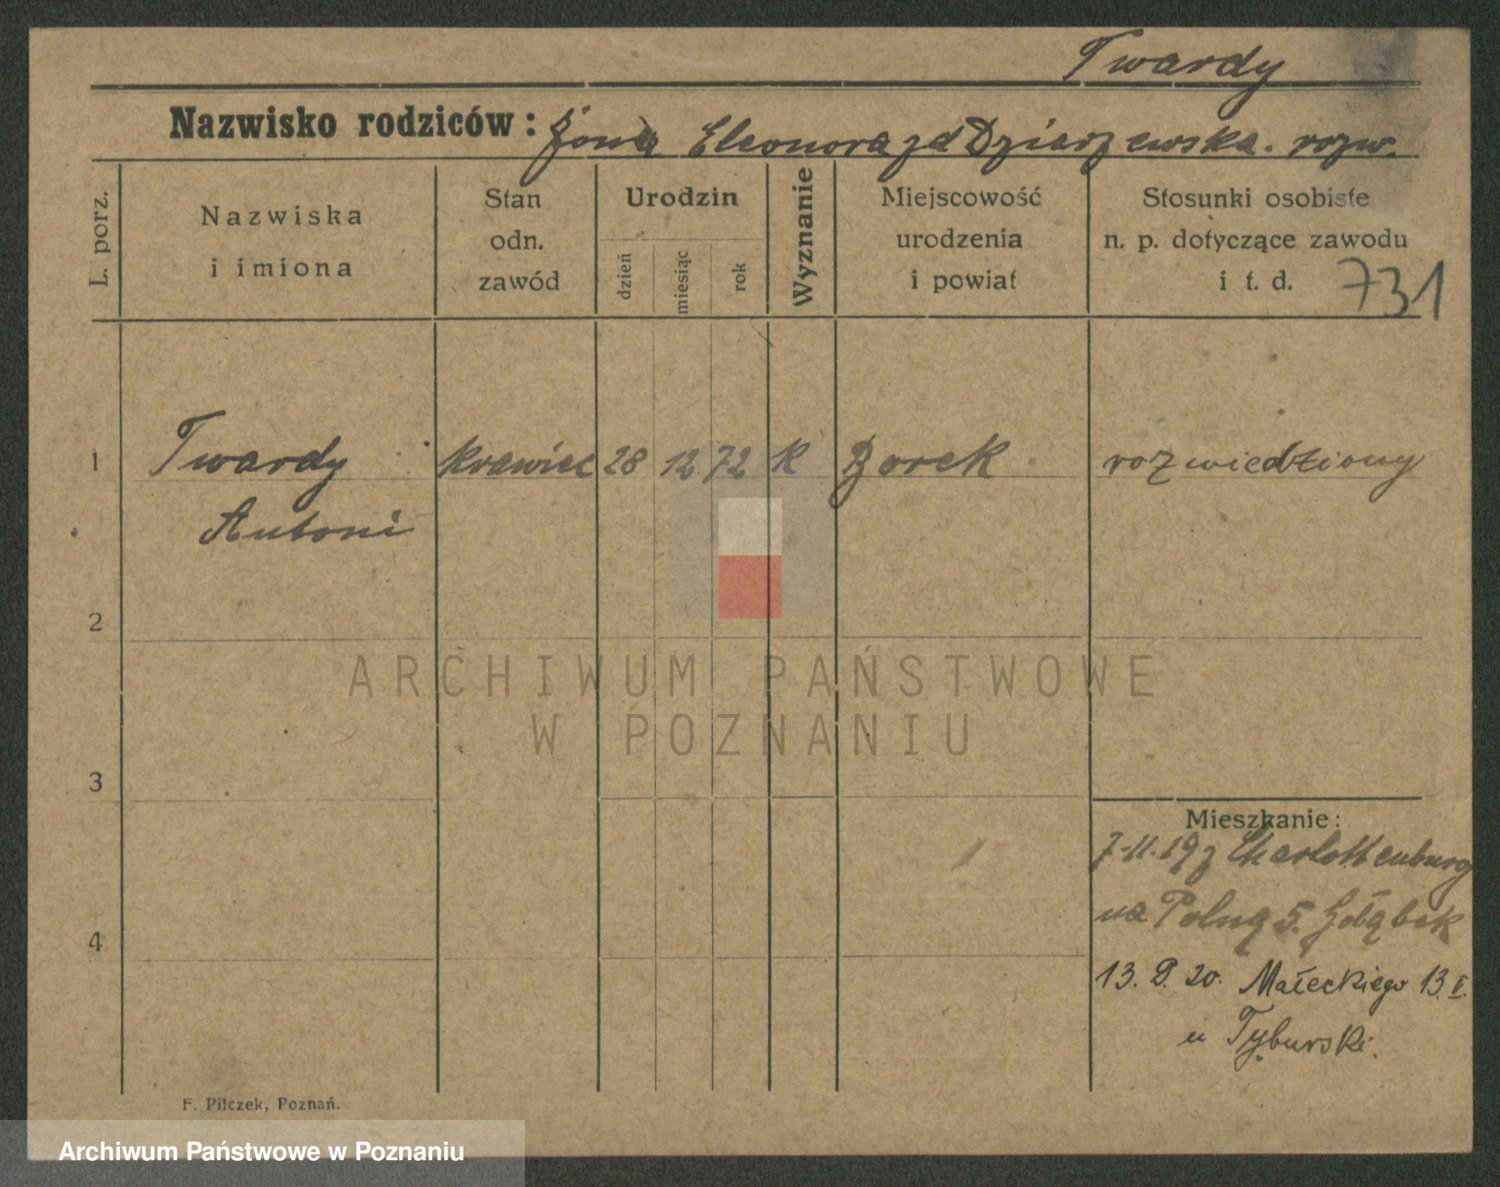 Twardy
Nazwisko rodziców: żona Eleonora zd Dzierzewska. rozw.
L. porz.
Nazwiska
i imiona
Stan
odn.
zawód
Urodzin
dzień
miesiąc
rok
Wyznanie
Miejscowość
urodzenia
i powiat
Stosunki osobiste
n. p. dotyczące zawodu
i t. d. 731
1 Twardy krawiec 28 12 72 K Borek rozwiedziony
Antoni
2
ARCHIWUM PAŃSTWOWE
W POZNANIU
3
Mieszkanie:
7-11.19 z Charlottenburg
na Polną 5. Gołąbek
4
13. 20. Małeckiego 13.
u Tyburski.
F. Pilczek, Poznań.
Archiwum Państwowe w Poznaniu